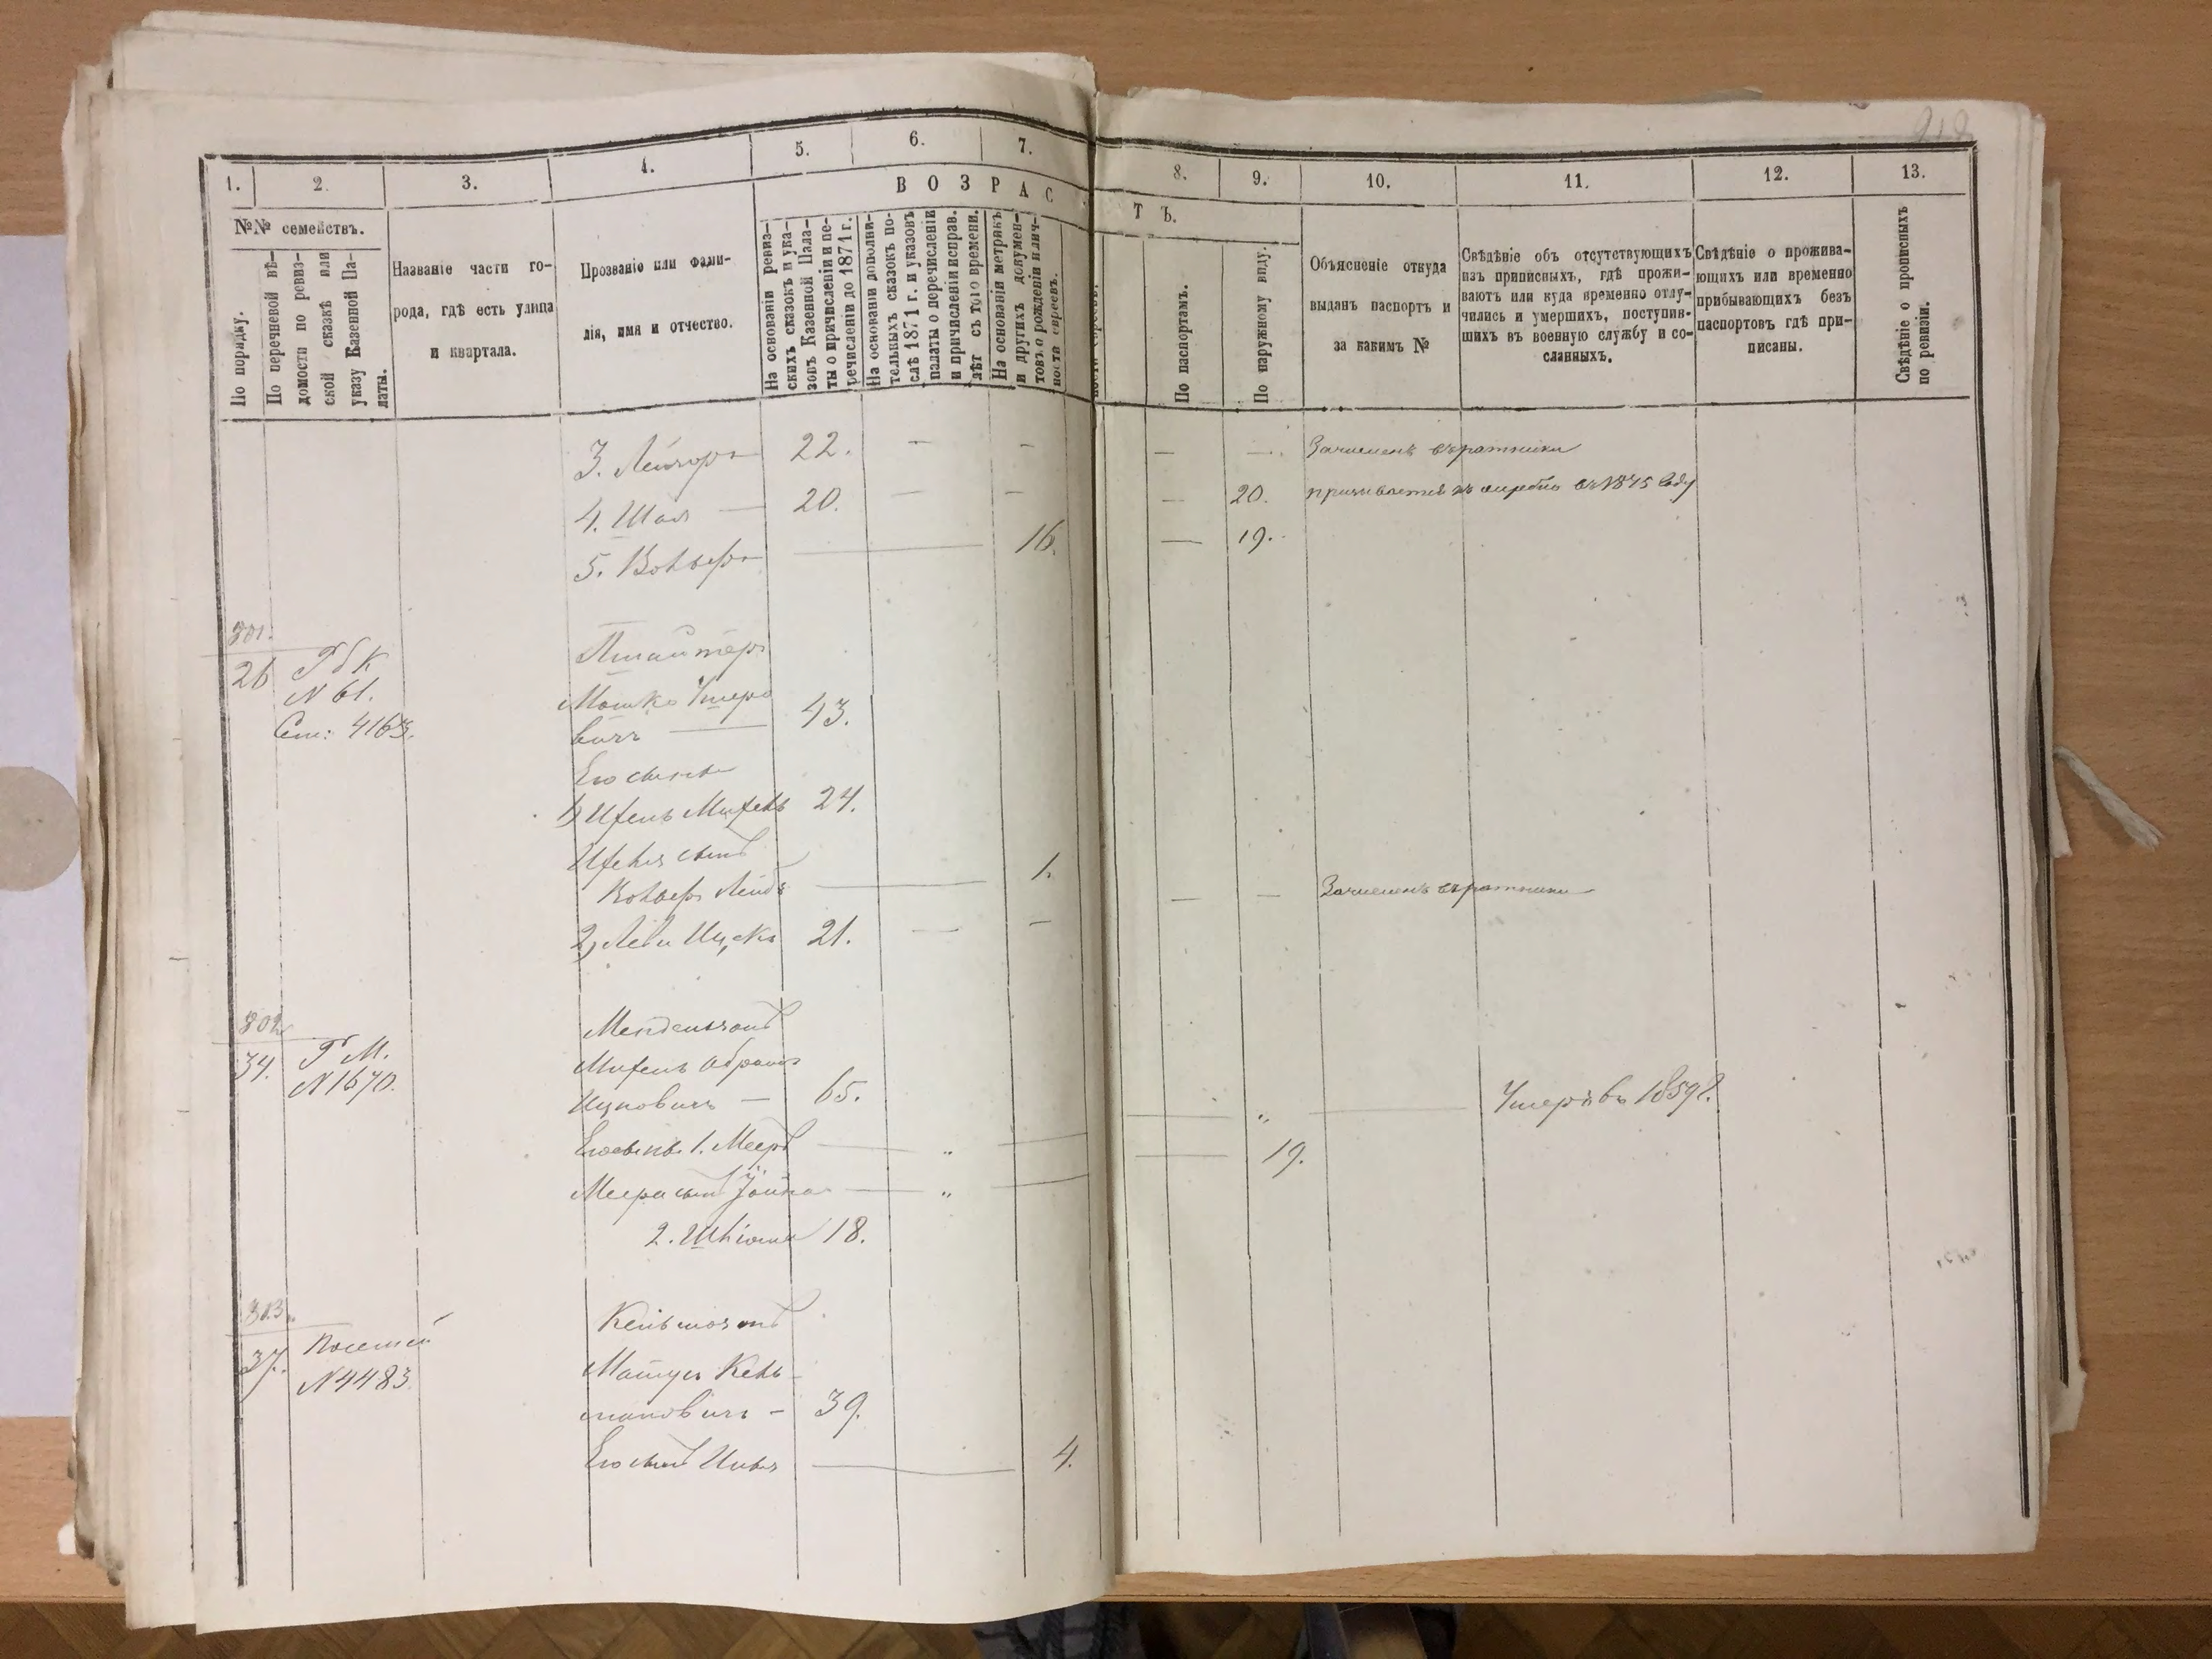 1.
2.
3.
4.
5.
6.
7.
8.
9.
10.
11.
12.
13.
ВОЗРАС
ТЪ.
№№ семействъ.
По порядку.
По перечневой вѣ-
домости по ревиз-
ской сказкѣ или
указу Казенной Па-
латы.
Названіе части го-
рода, гдѣ есть улица
и квартала.
Прозваніе или фами-
лія, имя и отчество.
На основаніи ревиз-
скихъ сказокъ и ука-
зовъ Казенной Пала-
ты о причисленіи и пе-
речисленіи до 1871 г.
На основаніи дополни-
тельныхъ сказокъ по-
слѣ 1871 г. и указовъ
палаты о перечисленіи
и причисленіи исправ.
лѣт съ того времени.
На основаніи метрикъ
и другихъ докумен-
товъ о рожденіи и лич-
ности евреевъ.
По паспортамъ.
По наружному виду.
Объясненіе откуда
выданъ паспортъ и
за какимъ №
Свѣдѣніе объ отсутствующихъ
изъ приписныхъ, гдѣ прожи-
ваютъ или куда временно отлу-
чились и умершихъ, поступив-
шихъ въ военную службу и со-
сланныхъ.
Свѣдѣніе о прожива-
ющихъ или временно
прибывающихъ безъ
паспортовъ гдѣ при-
писаны.
Свѣдѣніе о прописныхъ
по ревизіи.
3. Лейзоръ 22. — — — — Зачисленъ въ ратники
4. Шая — 20. — — — 20. призывается къ жребію въ 1875 году
5. Вольфъ — 16. — 19.
301.
26
N 61.
4163.
Мошко Умеро
вичъ — 43.
Его сынъ
1) Ицель Михель 24.
Ицеля сынъ
Вольфъ Лейбъ — 1. — — Зачисленъ въ ратники
2) Лейб Ицекъ 21. — —
302
34. Р М.
N 1670.
Мендельзонъ
Михель Абрамъ
Ицковичъ — 65. — „ — Умеръ въ 1859 г.
Его сынъ 1. Мееръ — „ — 19.
Меера сынъ Іойна — „ —
2. Шліома 18.
303.
37.
N 4483.
Кельмозонъ
Матусъ Кель-
мановичъ — 39.
Его сынъ — 4.